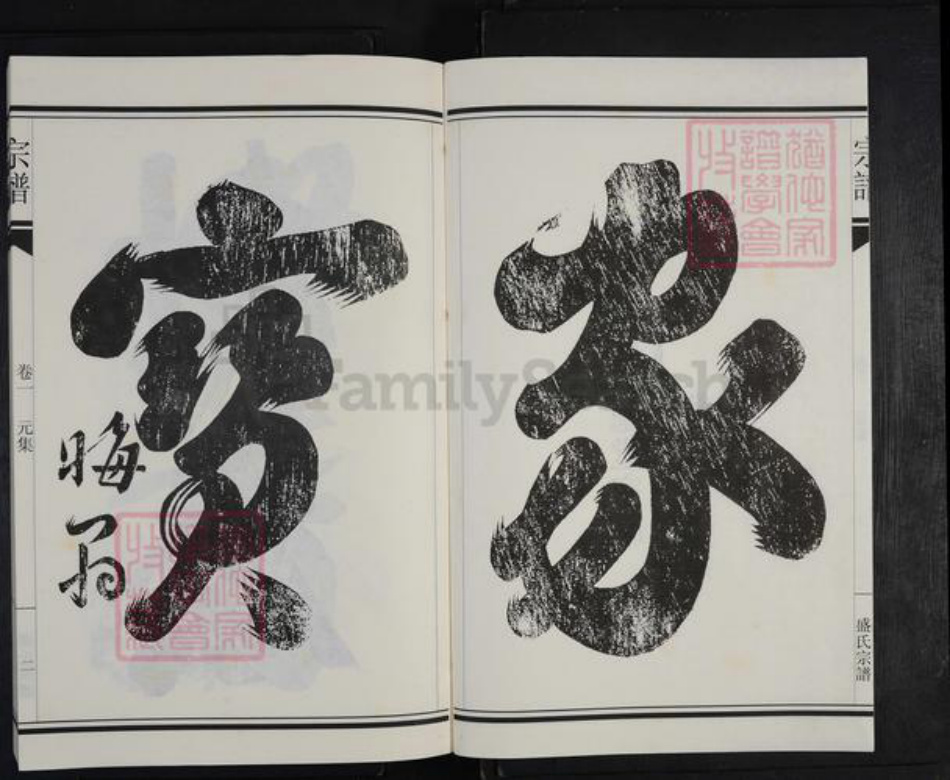 家
寶
晦翁
宗譜
卷一 元集
二
盛氏宗譜
FamilySearch